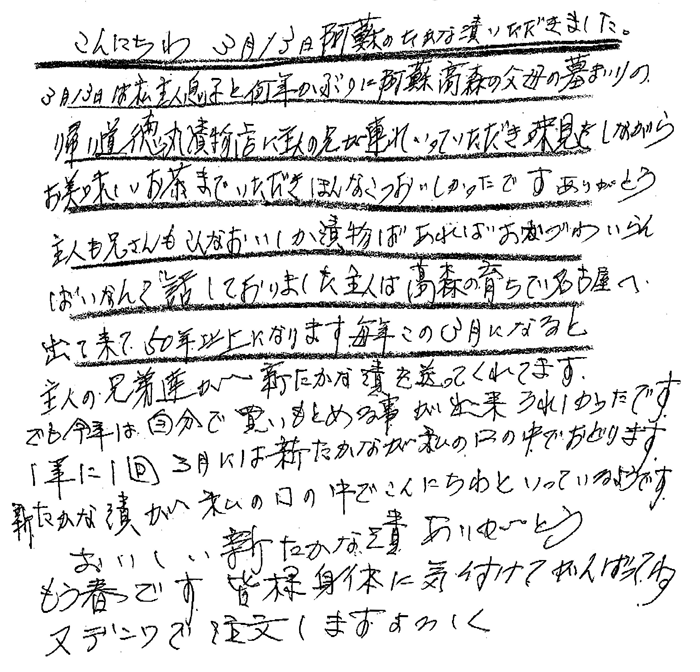 こんにちわ 3月13日阿蘇のたかな漬いただきました。
3月13日は私主人息子と何年かぶりに阿蘇高森の父母の墓まいりの
帰り道徳丸漬物店に主人の兄が連れいっていただき味見をしながら
お美味しいお茶までいただきほんなこつおいしかったです ありがとう
主人も兄さんもこんなおいしか漬物ばあればおかずわいらん
ばいなんて話しておりました主人は高森の育ちでい名古屋へ
出て来て50年以上になります毎年この3月になると
主人の兄着達が 新たかな漬を送ってくれてます.
でも今年は自分で買いもとめる事が出来うれしかったです
1年に1回 3月には新たかながが私の口の中でおどります
新たかな漬が 私の口の中でこんにちわといっているようです.
おいしい新たかな漬 ありがとう
もう春です 皆様身体に気付けてがんばってね
又デンワで注文しますよろしく